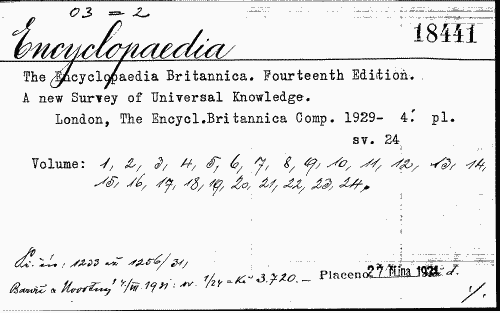 03 = 2
Encyclopaedia
18441
The Encyclopaedia Britannica. Fourteenth Edition.
A new Survey of Universal Knowledge.
London, The Encycl.Britannica Comp. 1929- 4° pl.
sv. 24
Volume: 1, 2, 3, 4, 5, 6, 7, 8, 9, 10, 11, 12, 13, 14,
15, 16, 17, 18, 19, 20, 21, 22, 23, 24.
Př. čís. 1233 až 1256/31,
a Novotný 4/III. 1931: sv. 1/24 = Kč 3.720.— Placeno 27 října 1931